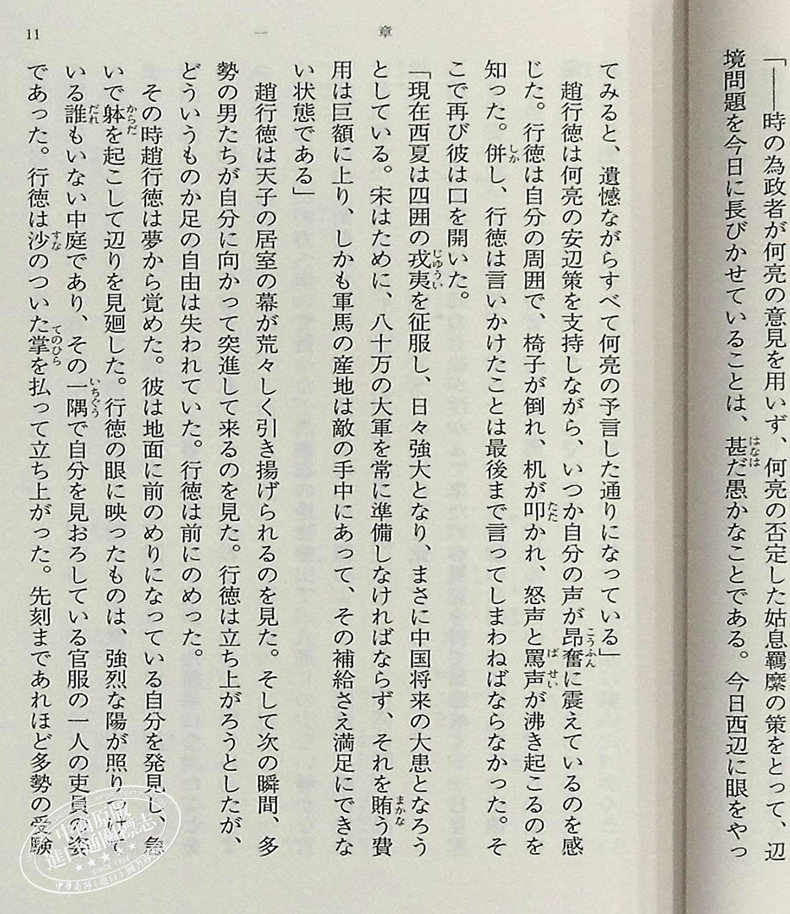 「――時の為政者が何亮の意見を用いず、何亮の否定した姑息羈縻の策をとって、辺
境問題を今日に長びかせていることは、甚だ愚かなことである。今日西辺に眼をやっ
てみると、遺憾ながらすべて何亮の予言した通りになっている」
趙行徳は何亮の安辺策を支持しながら、いつか自分の声が昂奮に震えているのを感
じた。行徳は自分の周囲で、椅子が倒れ、机が叩かれ、怒声と罵声が沸き起こるのを
知った。併し、行徳は言いかけたことは最後まで言ってしまわねばならなかった。そ
こで再び彼は口を開いた。
「現在西夏は四囲の戎夷を征服し、日々強大となり、まさに中国将来の大患となろう
としている。宋はために、八十万の大軍を常に準備しなければならず、それを賄う費
用は巨額に上り、しかも軍馬の産地は敵の手中にあって、その補給さえ満足にできな
い状態である」
趙行徳は天子の居室の幕が荒々しく引き揚げられるのを見た。そして次の瞬間、多
勢の男たちが自分に向かって突進して来るのを見た。行徳は立ち上がろうとしたが、
どういうものか足の自由は失われていた。行徳は前にのめった。
その時趙行徳は夢から覚めた。彼は地面に前のめりになっている自分を発見し、急
いで躰を起こして辺りを見廻した。行徳の眼に映ったものは、強烈な陽が照りけて
いる誰もいない中庭であり、その一隅で自分を見おろしている官服の一人の吏員の姿
であった。行徳は沙のついた掌を払って立ち上がった。先刻まであれほど多勢の受験
章 一
11